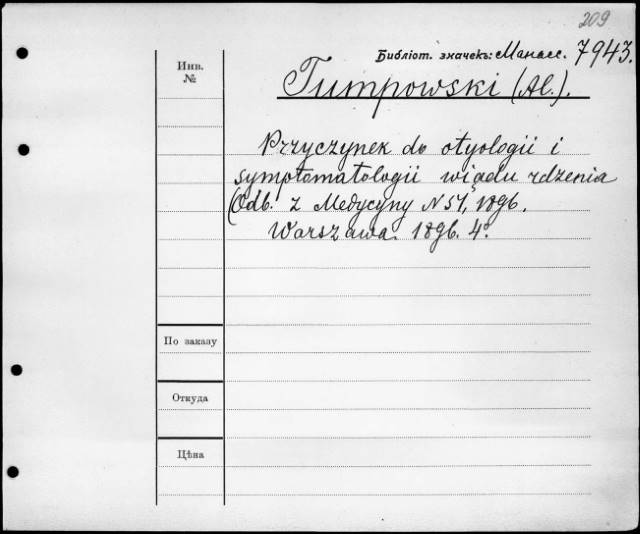 209
Библіот. значекъ: Манасс. 7943.
Инв.
№
Tumpowski (Al.).
Przyczynek do otyologii i
symptomatologii wiądu rdzenia
(Odb. z Medycyny N 51, 1896.
Warszawa. 1896. 4º.
По заказу
Откуда
Цѣна